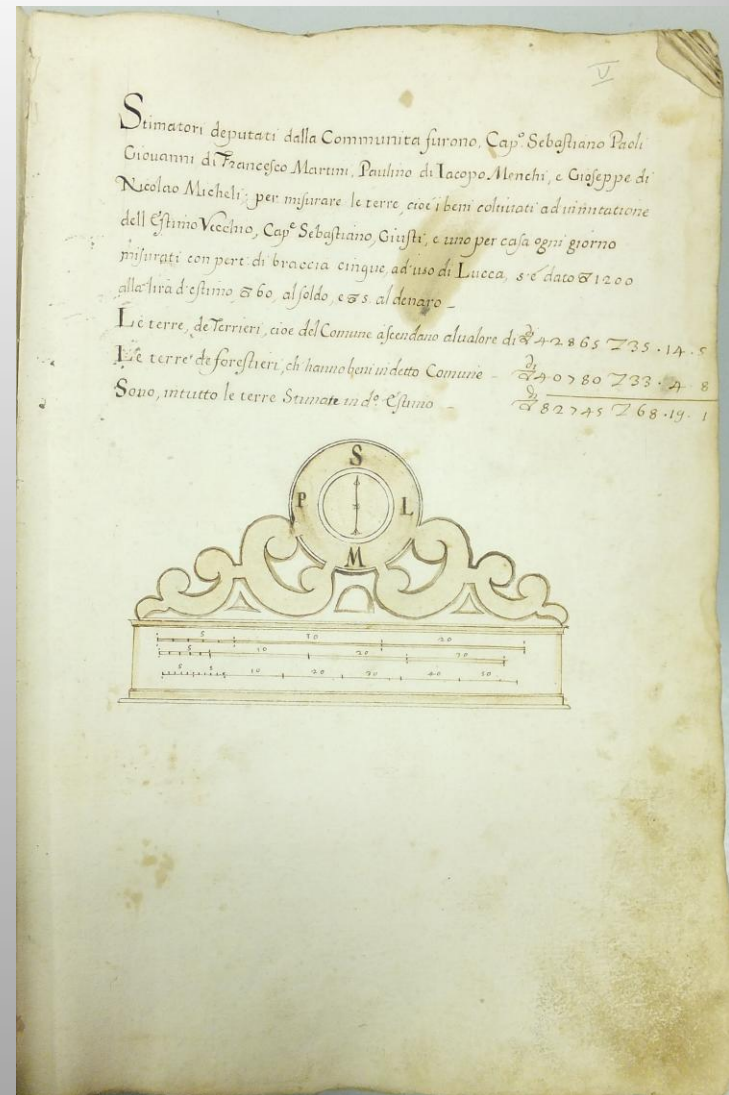 V
Stimatori deputati dalla Communita furono, Cap.º Sebastiano Paoli
Giovanni di Francesco Martini, Paulino di Iacopo Menchi, e Gioseppe di
Nicolao Micheli; per misurare le terre, cioè i beni coltivati ad immitatione
dell Estimo Vecchio, Cap.º Sebastiano, Giusti, e uno per casa ogni giorno
misurati con pert: di braccia cinque, ad uso di Lucca, s'é dato 1200
alla lira d'estimo, 60, al soldo, e 5. al denaro -
Le terre, de Terrieri, cioe del Comune ascendano al valore di 42865 735.14.5
Le terre de forestieri, ch'hanno beni in detto Comune - di 40780 733.4 8
Sono, in tutto le terre Stimate in d.º Estimo - di 82745 768.19.1
S
P L
M
5 10 20
5 10 20 30
5 5 10 20 30 40 50